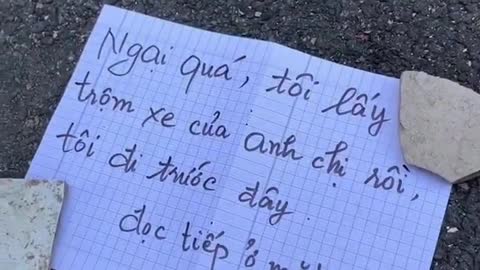 Ngại quá, tôi lấy
trộm xe của anh chị rồi,
tôi đi trước đây.
đọc tiếp ở